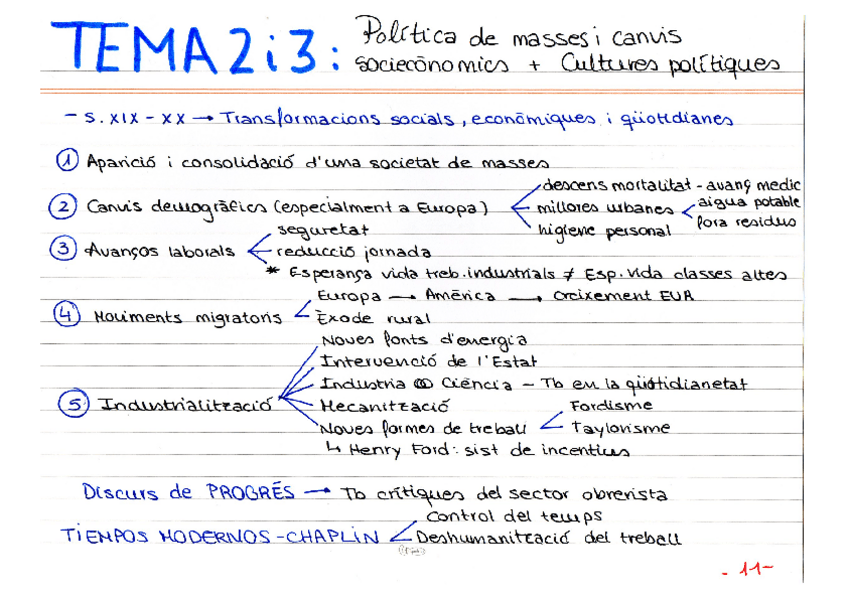 TEMA 2 i 3: Política de masses i canvis
socieconòmics + Cultures polítiques
- S. XIX - XX → Transformacions socials, econòmiques i qüotidianes
① Aparició i consolidació d'una societat de masses
② Canvis demogràfics (especialment a Europa)
descens mortalitat - avanç medic
millores urbanes
aigua potable
fora residus
higiene personal
③ Avanços laborals
seguretat
reducció jornada
* Esperança vida treb. industrials ≠ Esp. vida classes altes
④ Moviments migratoris
Europa → Amèrica → Creixement EUA
Èxode rural
⑤ Industrialització
Noves fonts d'energia
Intervenció de l'Estat
Industria Ciència - Tb en la qüotidianetat
Mecanització
Noves formes de treball
Fordisme
Taylorisme
↳ Henry Ford: sist de incentius
Discurs de PROGRÉS → Tb crítiques del sector obrerista
TIEMPOS MODERNOS - CHAPLIN
Control del temps
Deshumanització del treball
- 11 -